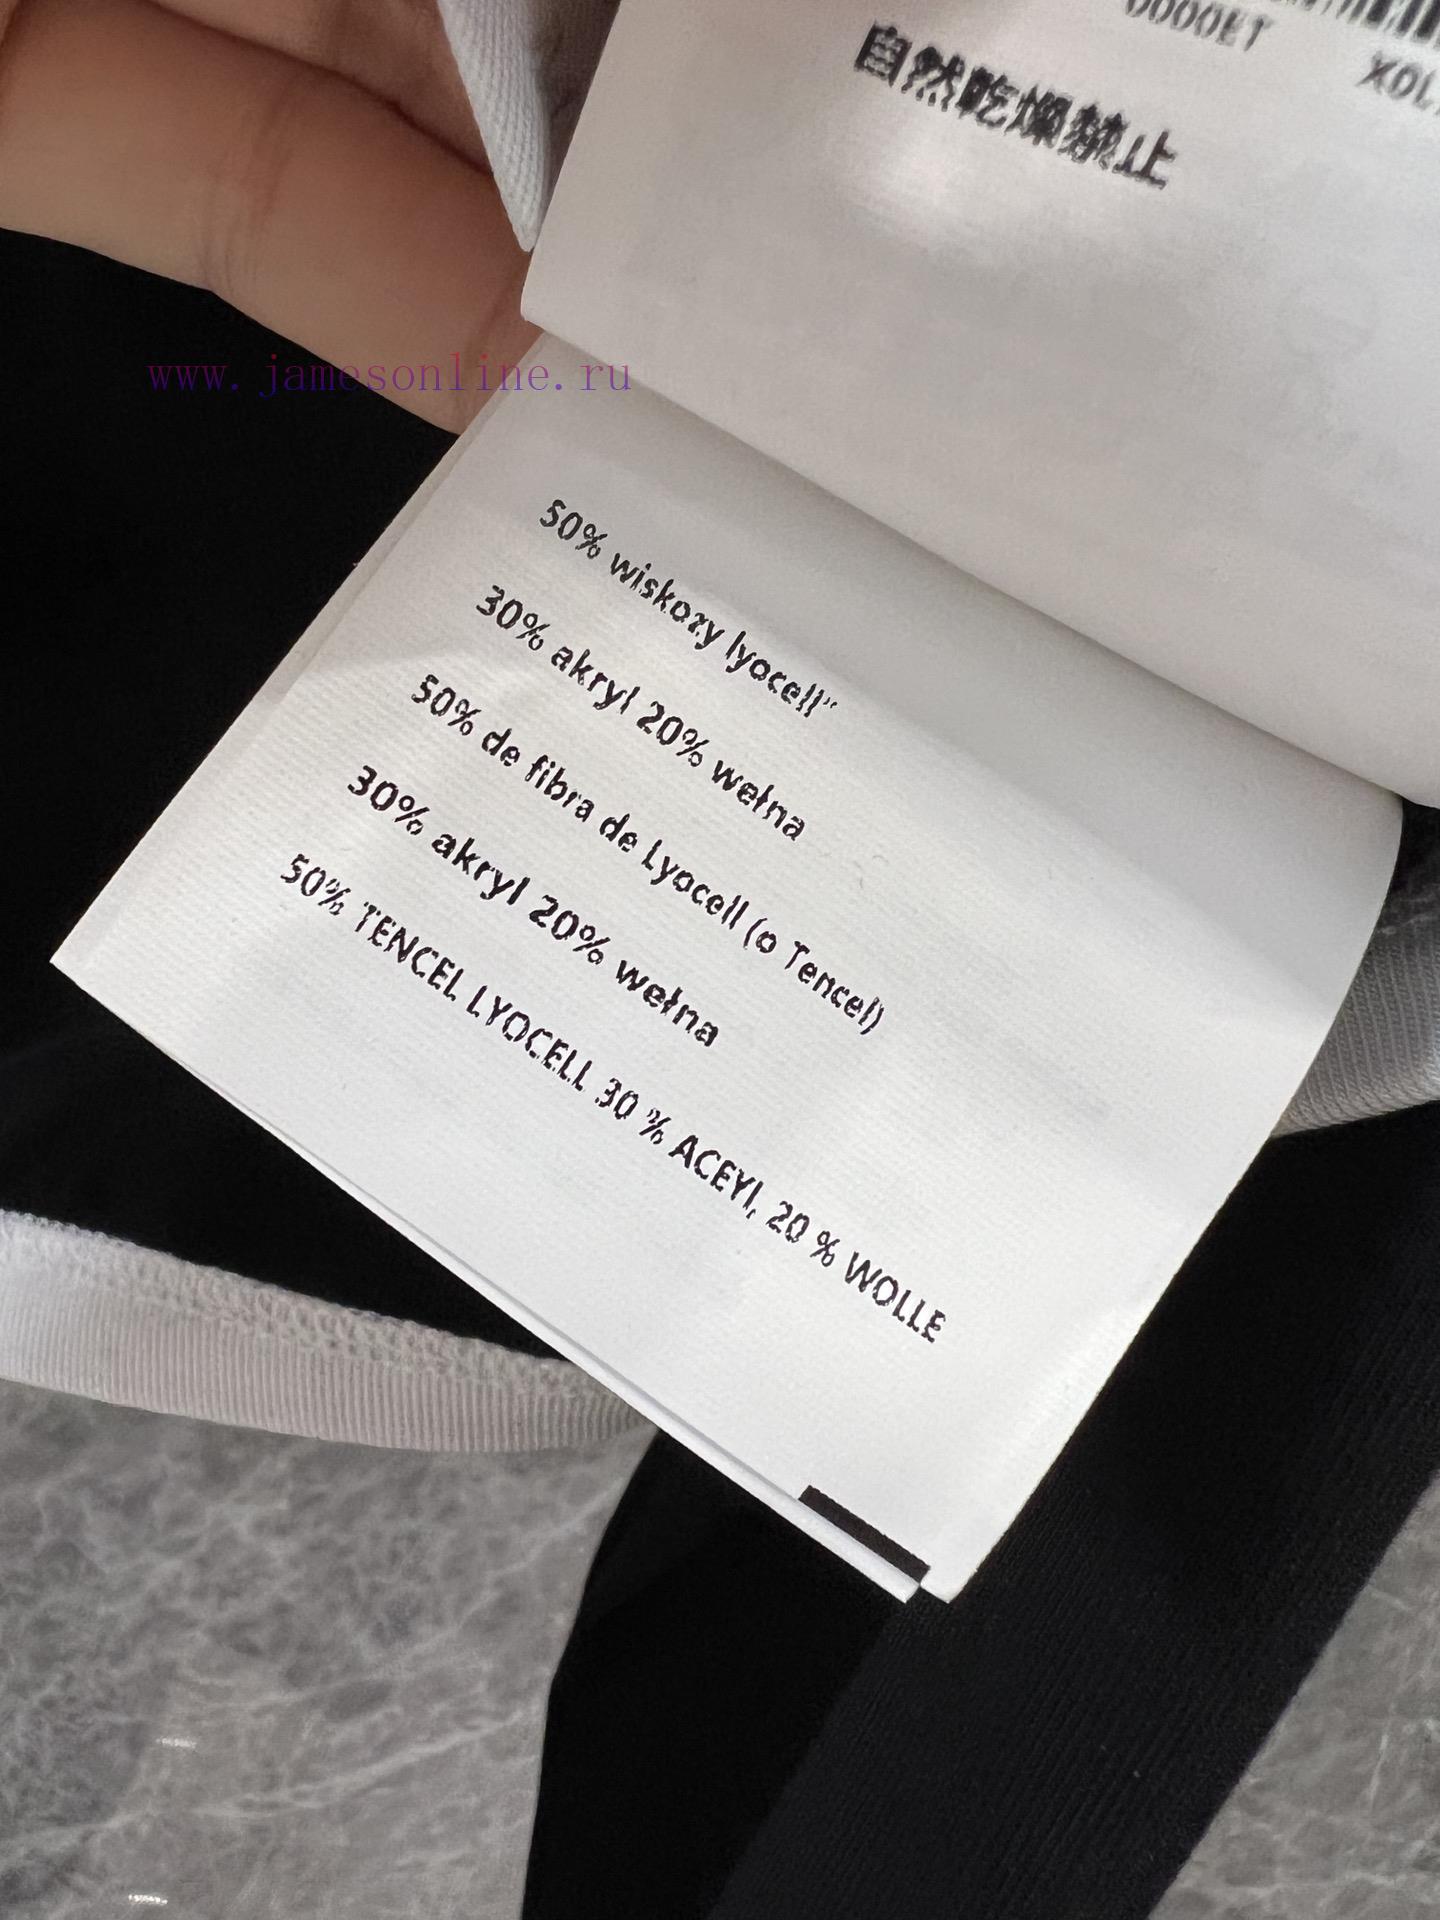 0000ET
自然乾燥禁止
www.jamesonline.ru
50% wiskozy lyocell"
30% akryl 20% wełna
50% de fibra de Lyocell (o Tencel)
30% akryl 20% wełna
50% TENCEL LYOCELL 30 % ACEYl, 20 % WOLLE